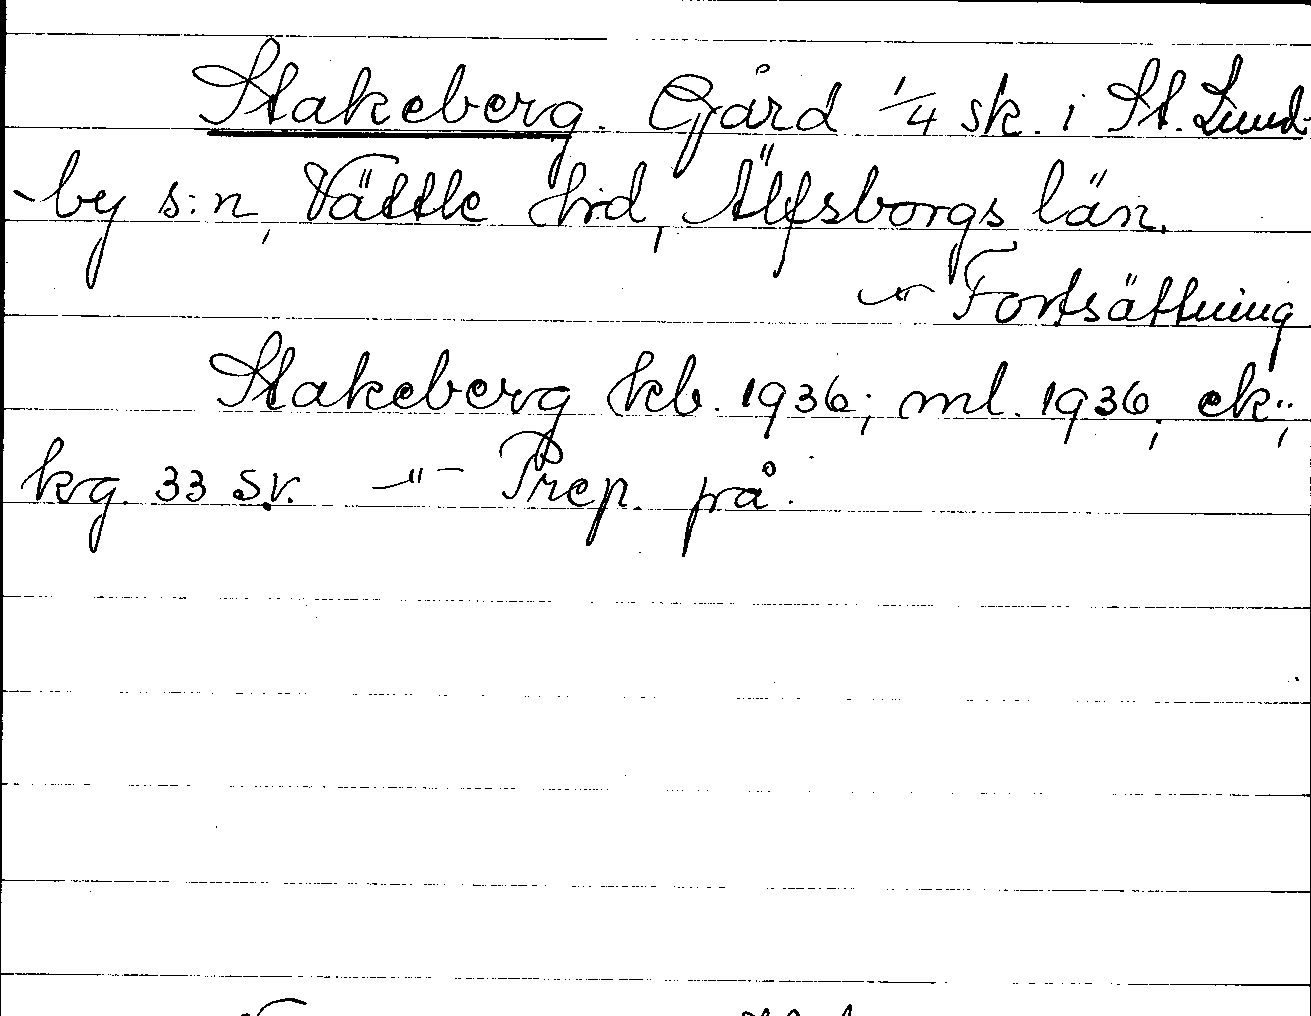 Stakeberg. Gård 1/4 sk. i St. Lund-
by s:n, Vättle hd, Älfsborgs län.
-"- Fortsättning
Stakeberg kb. 1936; ml. 1936; ek.;
kg. 33 sv. -"- Prep. på.